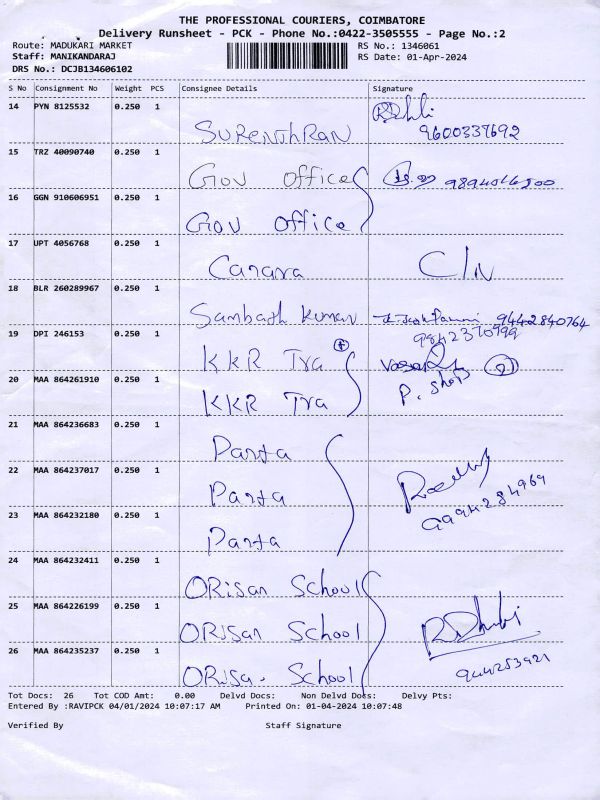 THE PROFESSIONAL COURIERS, COIMBATORE
Delivery Runsheet - PCK - Phone No.:0422-3505555 - Page No.:2
Route: MADUKARI MARKET
Staff: MANIKANDARAJ
DRS No.: DCJB134606102
RS No.: 1346061
RS Date: 01-Apr-2024
S No Consignment No Weight PCS Consignee Details Signature
14 PYN 8125532 0.250 1 SURENTHRAN 9600337692
15 TRZ 40090740 0.250 1 Gov offices
16 GGN 910606951 0.250 1 Gov office
17 UPT 4056768 0.250 1 Canara C/N
18 BLR 260289967 0.250 1 Sambath Kumar 9442840764
9842370999
19 DPI 246153 0.250 1 KKR Tra
20 MAA 864261910 0.250 1 KKR Tra P. Shop
21 MAA 864236683 0.250 1 Parta
22 MAA 864237017 0.250 1 Parta
9994284969
23 MAA 864232180 0.250 1 Parta
24 MAA 864232411 0.250 1 ORISan School
25 MAA 864226199 0.250 1 ORISan School
26 MAA 864235237 0.250 1 ORISa. School
Tot Docs: 26 Tot COD Amt: 0.00 Delvd Docs: Non Delvd Docs: Delvy Pts:
Entered By :RAVIPCK 04/01/2024 10:07:17 AM Printed On: 01-04-2024 10:07:48
Verified By Staff Signature